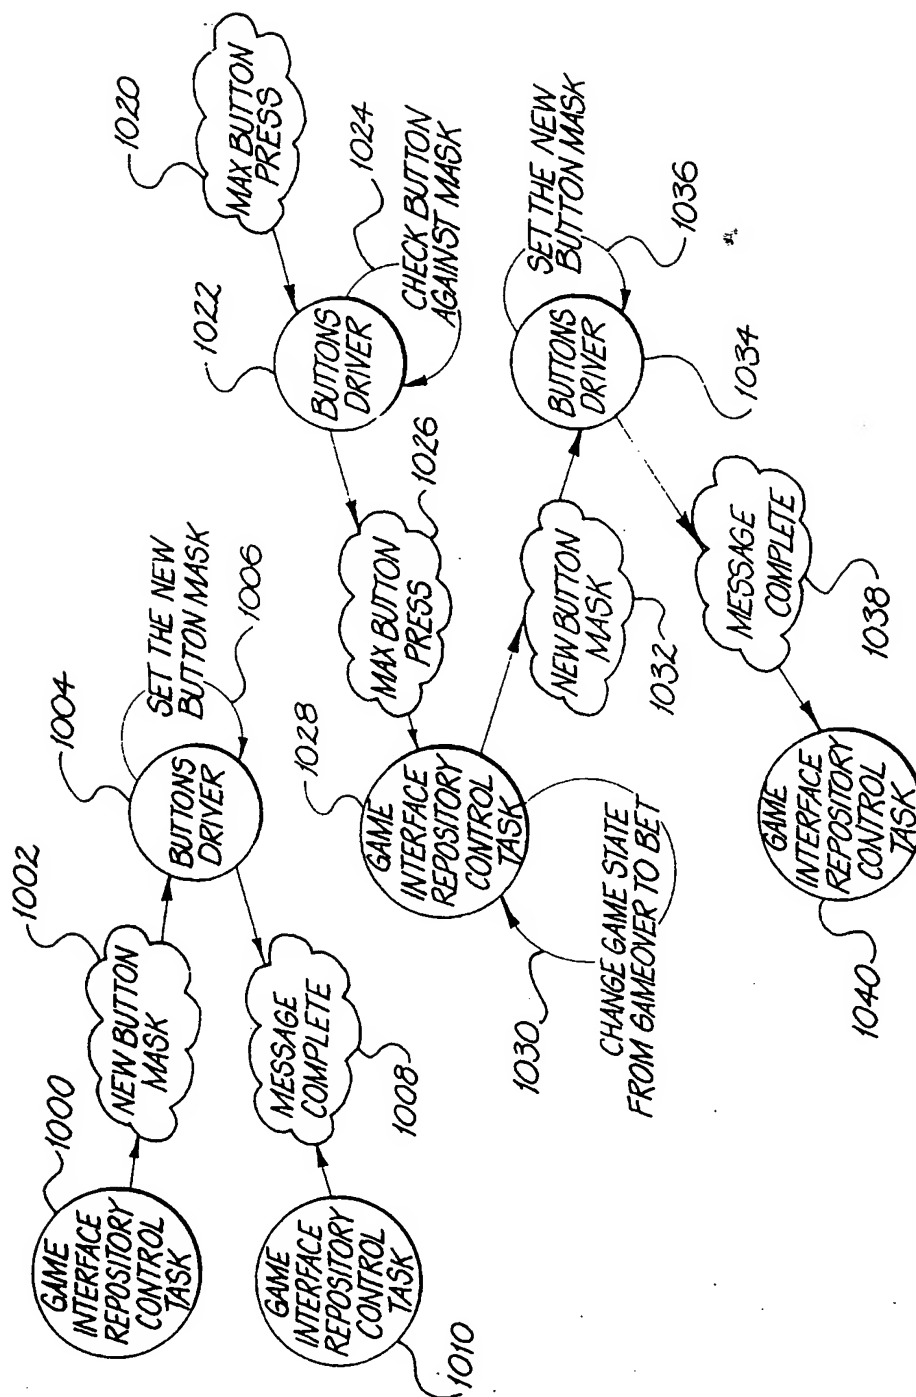 1000
GAME
INTERFACE
REPOSITORY
CONTROL
TASK
1002
NEW BUTTON
MASK
1004
BUTTONS
DRIVER
SET THE NEW
BUTTON MASK
1006
MESSAGE
COMPLETE
1008
GAME
INTERFACE
REPOSITORY
CONTROL
TASK
1010
1020
MAX BUTTON
PRESS
1022
BUTTONS
DRIVER
1024
CHECK BUTTON
AGAINST MASK
MAX BUTTON
PRESS
1026
1028
GAME
INTERFACE
REPOSITORY
CONTROL
TASK
1030
CHANGE GAME STATE
FROM GAMEOVER TO BET
NEW BUTTON
MASK
1032
BUTTONS
DRIVER
1034
SET THE NEW
BUTTON MASK
1036
MESSAGE
COMPLETE
1038
GAME
INTERFACE
REPOSITORY
CONTROL
TASK
1040